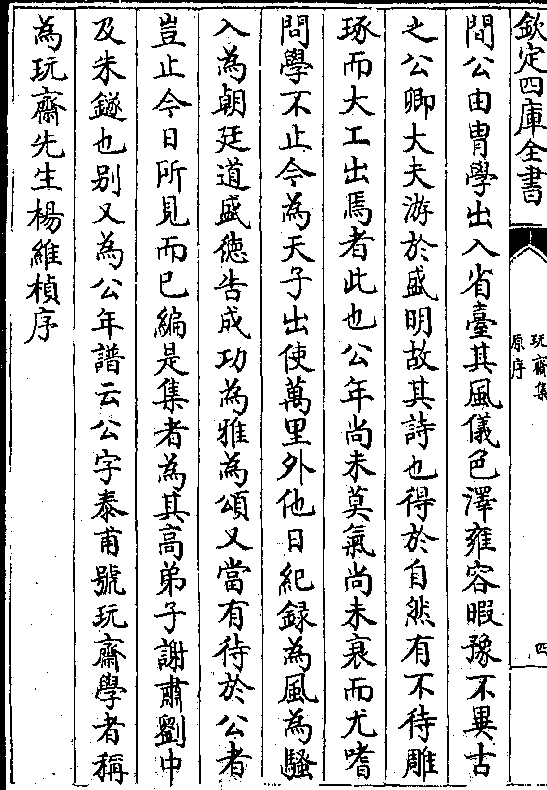 欽定四庫全書
玩齋集
原序
四
間公由胄學出入省臺其風儀色澤雍容暇豫不異古
之公卿大夫游於盛明故其詩也得於自然有不待雕
琢而大工出焉者此也公年尚未莫氣尚未衰而尤嗜
問學不止今為天子出使萬里外他日紀録為風為騷
入為朝廷道盛徳告成功為雅為頌又當有待於公者
豈止今日所見而已編是集者為其高弟子謝肅劉中
及朱鐩也别又為公年譜云公字泰甫號玩齋學者稱
為玩齋先生楊維楨序